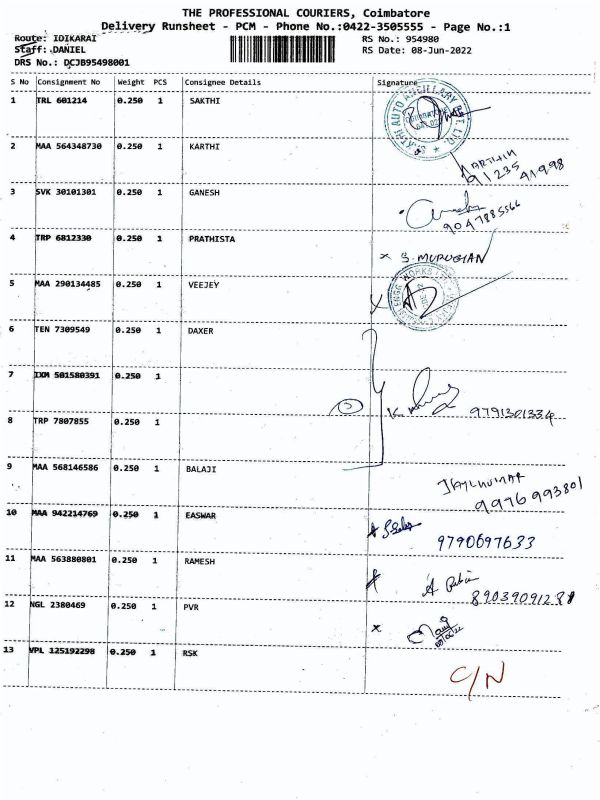 THE PROFESSIONAL COURIERS, Coimbatore
Delivery Runsheet - PCM - Phone No.:0422-3505555 - Page No.:1
Route: IDIKARAI
RS No.: 954980
Staff: DANIEL
RS Date: 08-Jun-2022
DRS No.: DCJB95498001
S No Consignment No Weight PCS Consignee Details Signature
1 TRL 601214 0.250 1 SAKTHI
2 MAA 564348730 0.250 1 KARTHI
KARTHIK
91235 41998
3 SVK 30101301 0.250 1 GANESH
9047885566
4 TRP 6812330 0.250 1 PRATHISTA
x S. MURUGIAN
5 MAA 290134485 0.250 1 VEEJEY
6 TEN 7309549 0.250 1 DAXER
7 IXM 501580391 0.250 1
9791301334
8 TRP 7807855 0.250 1
9 MAA 568146586 0.250 1 BALAJI
JAYKUMAR
9976993801
10 MAA 942214769 0.250 1 EASWAR
9790697633
11 MAA 563880801 0.250 1 RAMESH
12 NGL 2380469 0.250 1 PVR
x
13 VPL 125192298 0.250 1 RSK
C/N